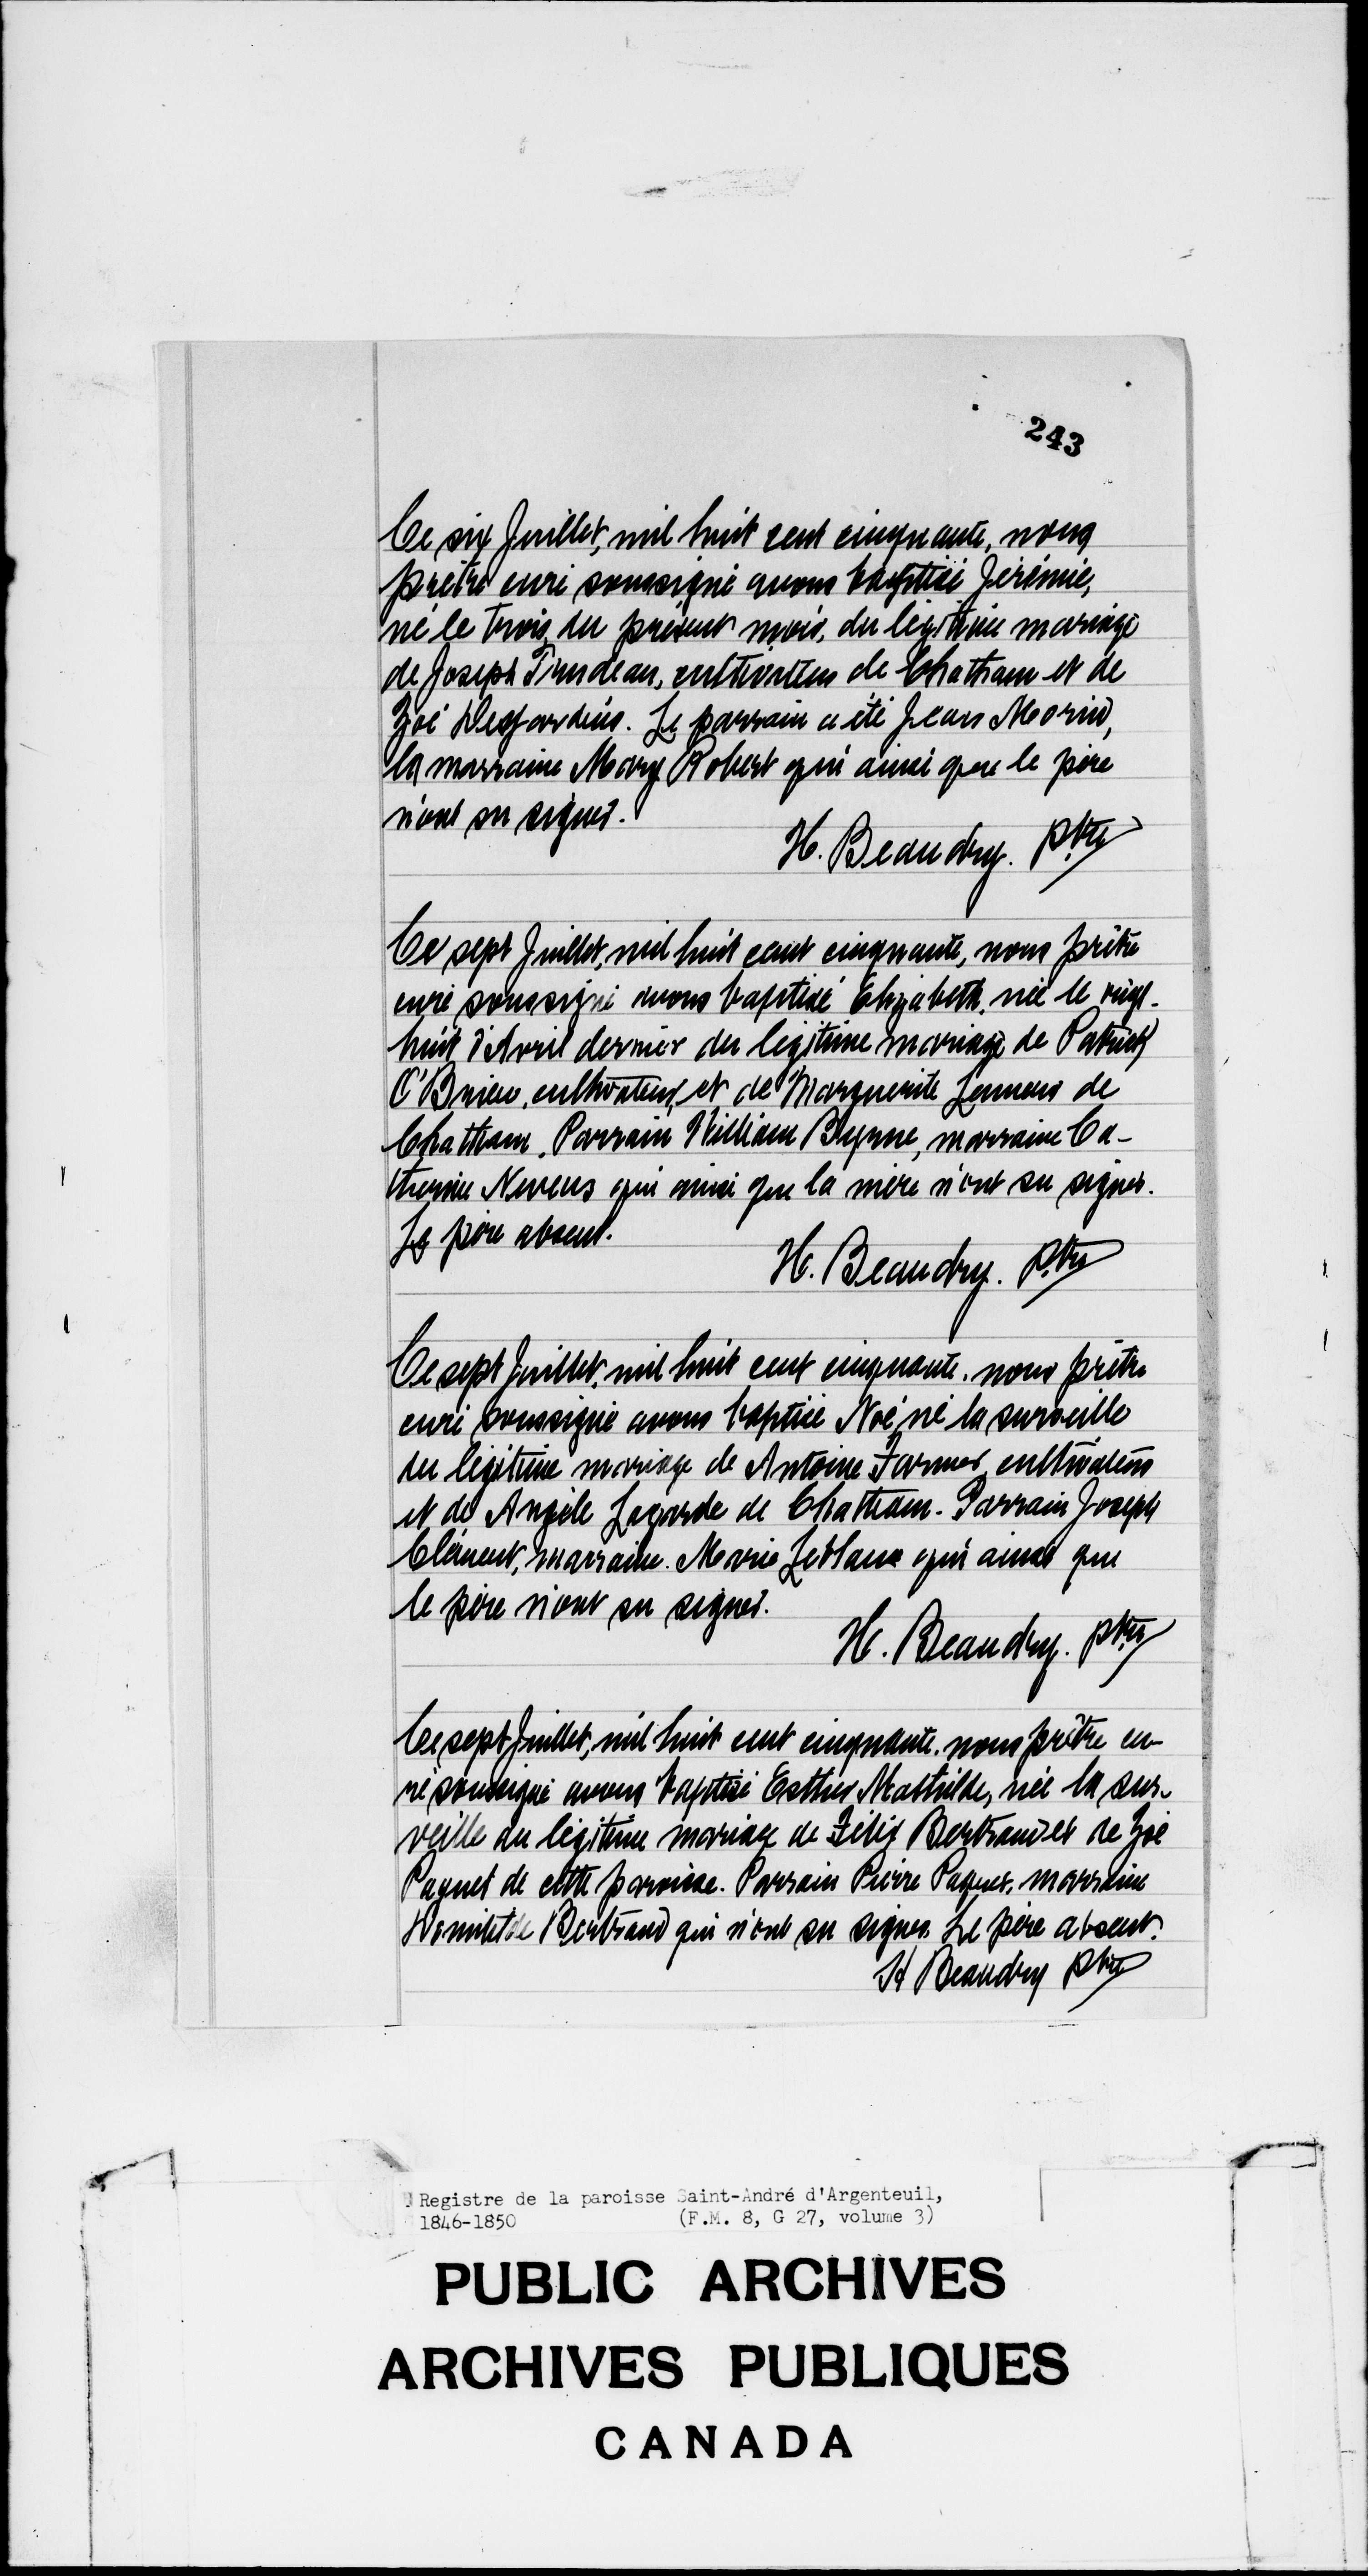 243
Ce six Juillet, mil huit cent cinquante, nous
prêtre curé soussigné avons baptisé Jérémie,
né le trois du présent mois, du légitime mariage
de Joseph Trudeau, cultivateur de Chatham et de
Zoé Desjardins. Le parrain a été Jean Morin,
la marraine Mary Robert qui ainsi que le père
n'ont su signer.
H. Beaudry. ptre
Ce sept Juillet, mil huit cent cinquante, nous prêtre
curé soussigné avons baptisé Elizabeth, née le vingt-
huit d'Avril dernier du légitime mariage de Patrick
O'Brien, cultivateur, et de Marguerite de
Chatham. Parrain William Byrne, marraine Ca-
therine Nevens qui ainsi que la mère n'ont su signer.
Le père absent.
H. Beaudry. ptre
Ce sept Juillet, mil huit cent cinquante. nous prêtre
curé soussigné avons baptisé Noé né la surveille
du légitime mariage de Antoine Farmer, cultivateur
et de Angèle Lagarde de Chatham. Parrain Joseph
Clément, marraine. Marie Leblanc qui ainsi que
le père n'ont su signer.
H. Beaudry. ptre
Ce sept Juillet, mil huit cent cinquante. nous prêtre cu-
ré soussigné avons baptisé Esther Mathilde, née la sur-
veille du légitime mariage de Félix Bertrand et de Zoé
Paquet de cette paroisse. Parrain Pierre Paquet, marraine
Domitilde Bertrand qui n'ont su signer. Le père absent.
H Beaudry ptre
Registre de la paroisse Saint-André d'Argenteuil,
1846-1850 (F.M. 8, G 27, volume 3)
PUBLIC ARCHIVES
ARCHIVES PUBLIQUES
CANADA